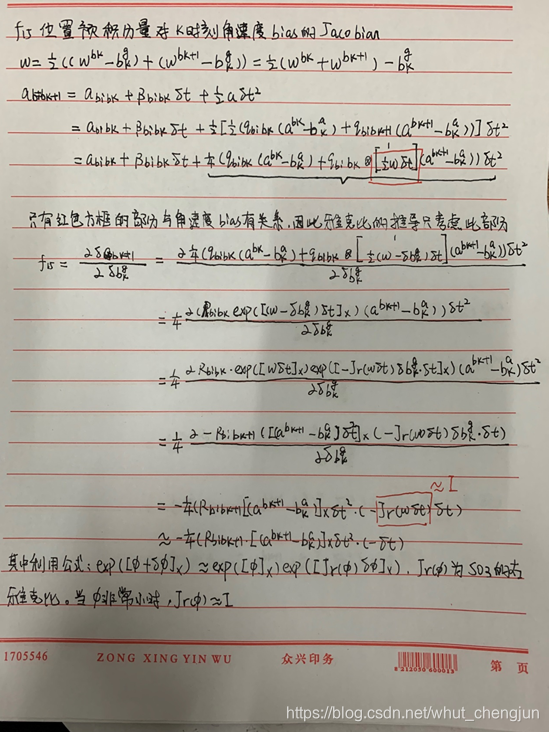 f15 位置预积分量对 K时刻角速度bias的Jacobian
w = ½((w^bk - b_k^g) + (w^bk+1 - b_k^g)) = ½(w^bk + w^bk+1) - b_k^g
a_bibk+1 = a_bibk + β_bibk δt + ½aδt²
= a_bibk + β_bibk δt + ½[½(q_bibk(a^bk - b_k^a) + q_bibk+1(a^bk+1 - b_k^a))]δt²
= a_bibk + β_bibk δt + ¼(q_bibk(a^bk - b_k^a) + q_bibk ⊗ [1 ½wδt](a^bk+1 - b_k^a))δt²
只有红色方框的部分与角速度bias有关系,因此雅克比的推导只考虑此部分
f15 = ∂δa_bibk+1 / ∂δb_k^g = ∂¼(q_bibk(a^bk - b_k^a) + q_bibk ⊗ [1 ½(w - δb_k^g)δt](a^bk+1 - b_k^a))δt² / ∂δb_k^g
= ¼ ∂(R_bibk exp([(w - δb_k^g)δt]×)(a^bk+1 - b_k^a))δt² / ∂δb_k^g
= ¼ ∂R_bibk · exp([wδt]×)exp([-Jr(wδt)δb_k^g·δt]×)(a^bk+1 - b_k^a)δt² / ∂δb_k^g
= ¼ ∂ - R_bibk+1([(a^bk+1 - b_k^a)δt²]×(-Jr(wδt)δb_k^g·δt) / ∂δb_k^g
≈ I
= -¼(R_bibk+1[(a^bk+1 - b_k^a)]×δt²·(-Jr(wδt)δt)
≈ -¼(R_bibk+1·[(a^bk+1 - b_k^a)]×δt²·(-δt)
其中利用公式: exp([φ+δφ]×) ≈ exp([φ]×)exp([Jr(φ)δφ]×), Jr(φ)为SO3的右
雅克比。当φ非常小时, Jr(φ)≈I
1705546 ZONG XING YIN WU 众兴印务 第 页
https://blog.csdn.net/whut_chengjun